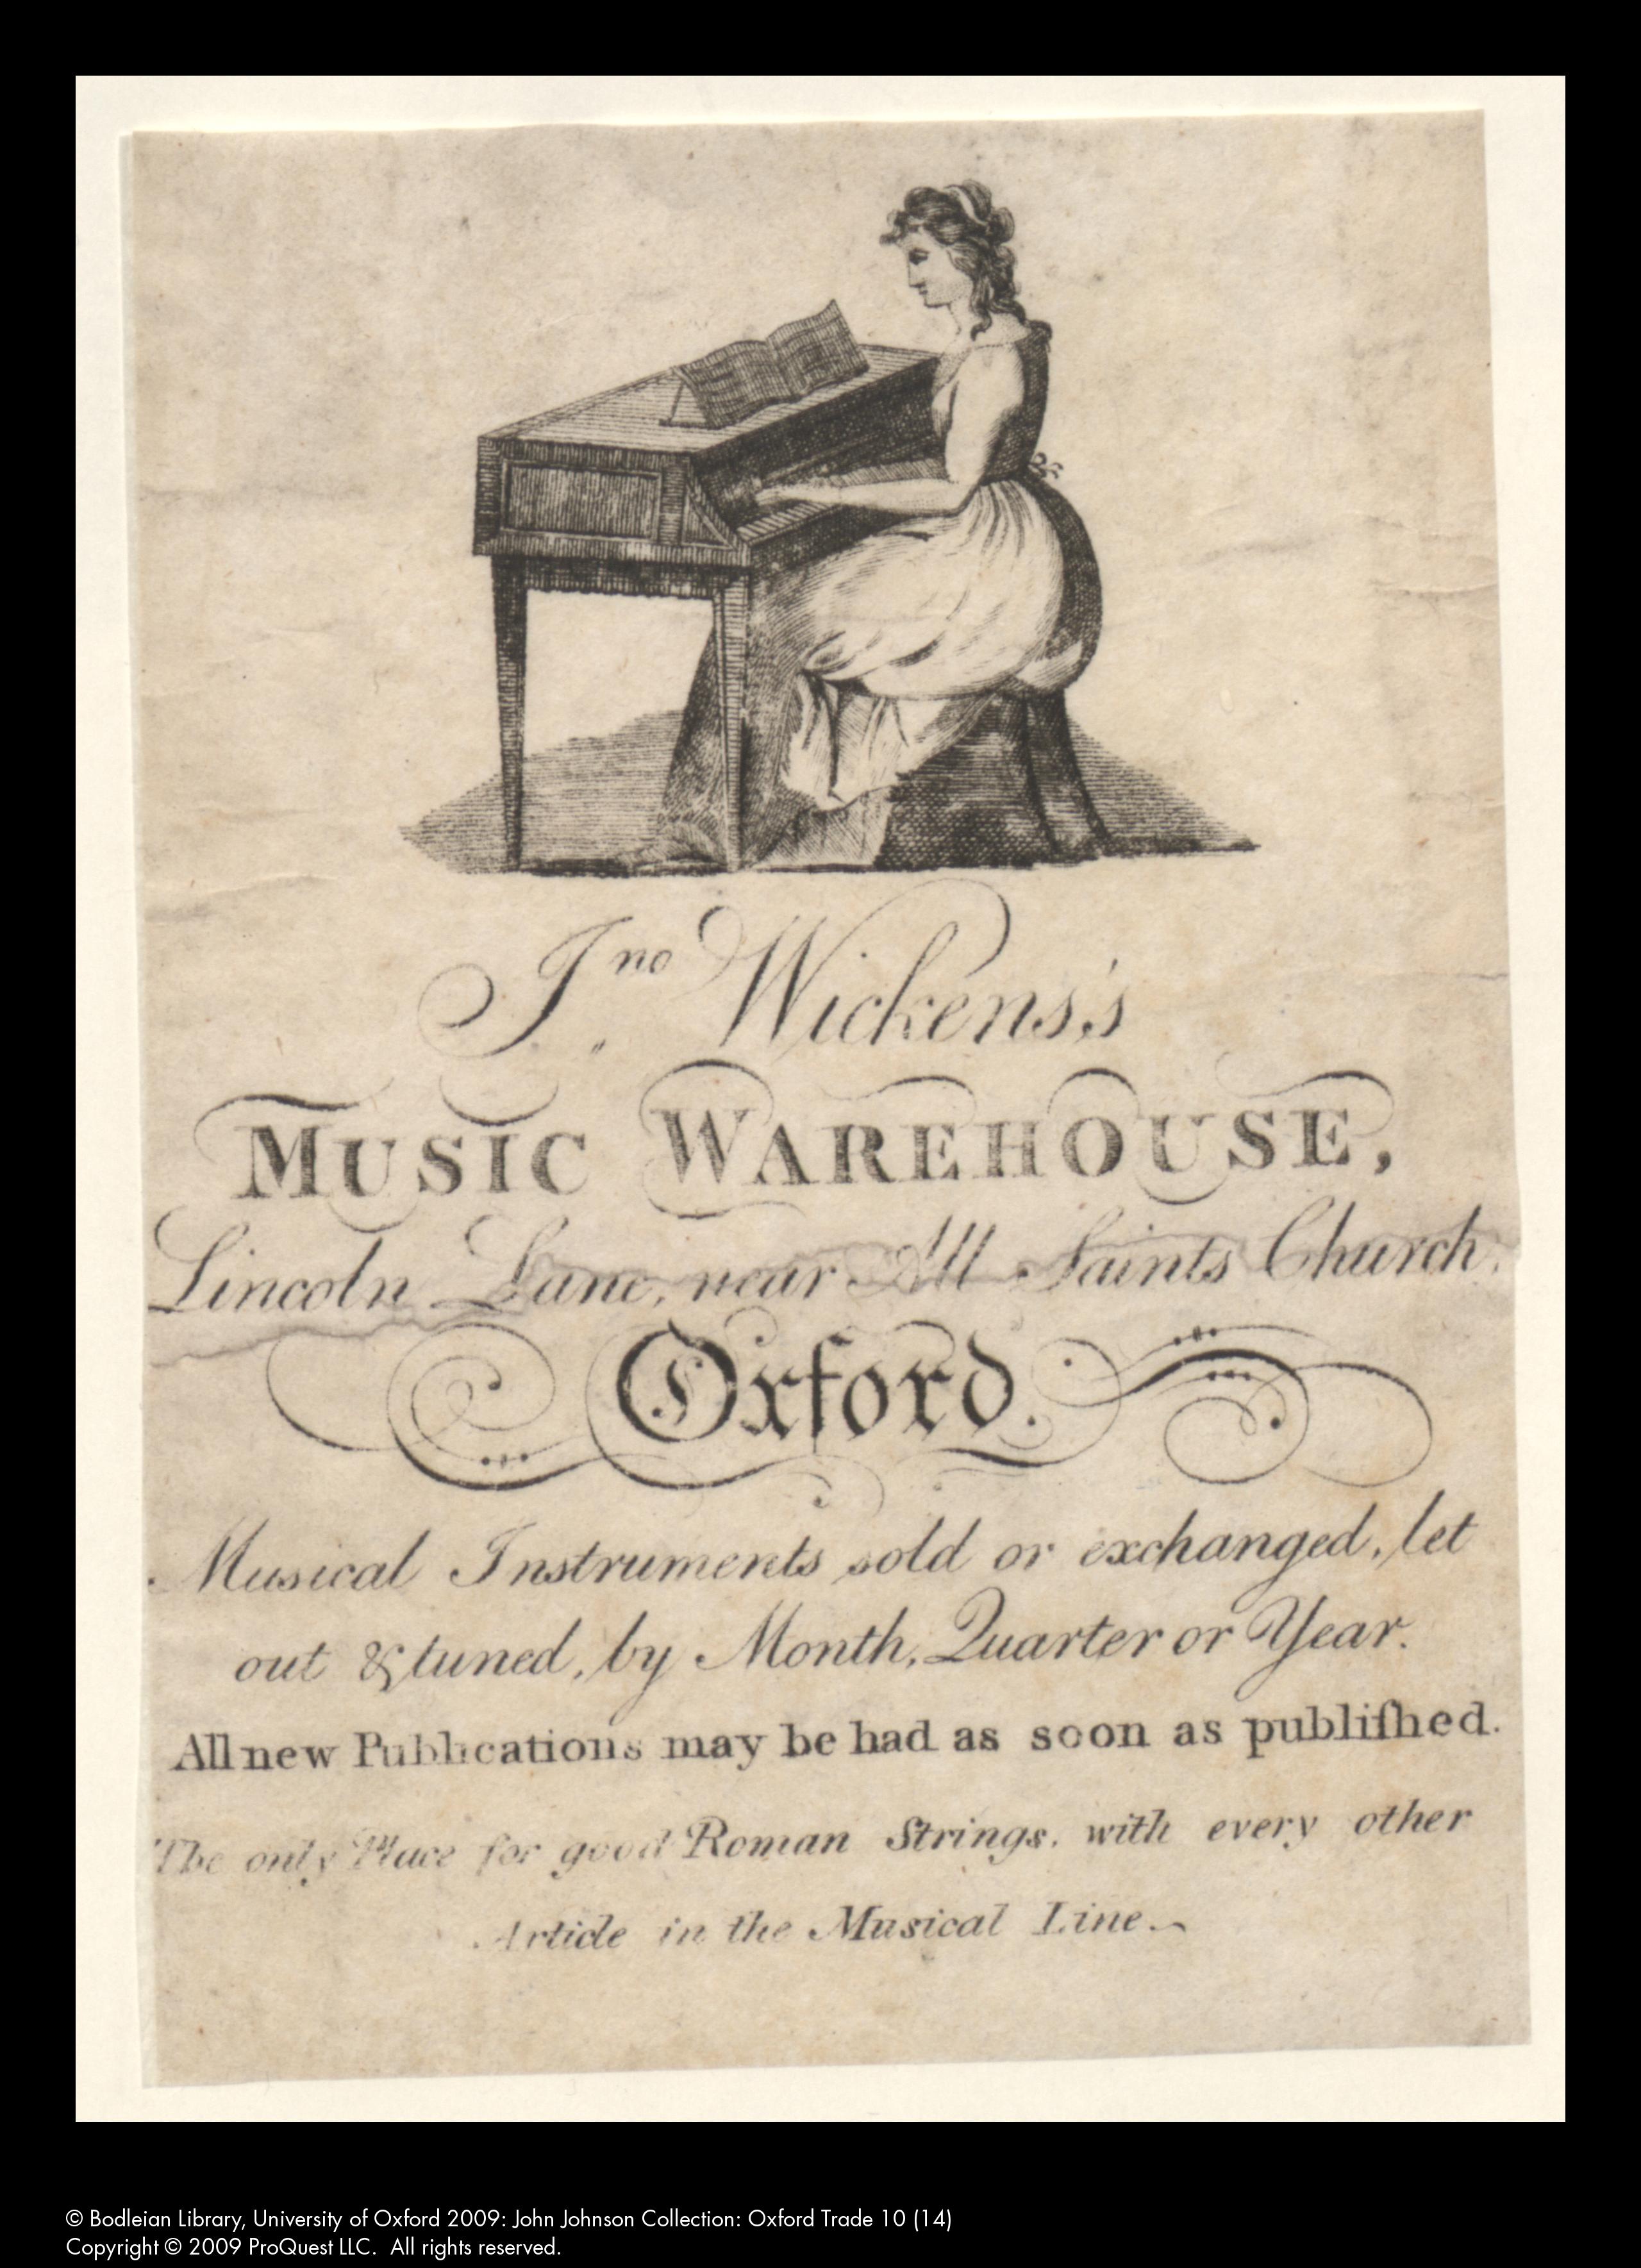 Jno Wickens's
MUSIC WAREHOUSE,
Lincoln Lane, near All Saints Church.
Oxford.
Musical Instruments sold or exchanged, let
out & tuned, by Month, Quarter or Year.
All new Publications may be had as soon as publiſhed.
The only Place for good Roman Strings, with every other
Article in the Musical Line.
© Bodleian Library, University of Oxford 2009: John Johnson Collection: Oxford Trade 10 (14)
Copyright © 2009 ProQuest LLC. All rights reserved.